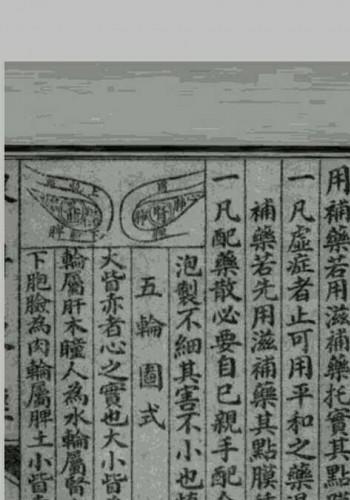 用補藥若用滋補藥托實其點
一凡虛症者止可用平和之藥
補藥若先用滋補藥其點膜
一凡配藥散必要自己親手配
泡製不細其害不小也
五輪圖式
大眥赤者心之實也大小眥
輪屬肝木瞳人為水輪屬腎
下胞臉為肉輪屬脾土小眥